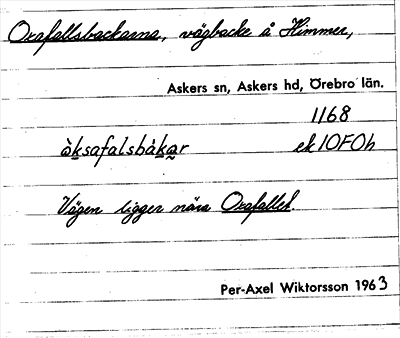 Oxafallsbackarna, vägbacke å Himmer,
Askers sn, Askers hd, Örebro län.
1168
àksafalsbàkar ek 10F0h
Vägen ligger nära Oxafallet.
Per-Axel Wiktorsson 1963